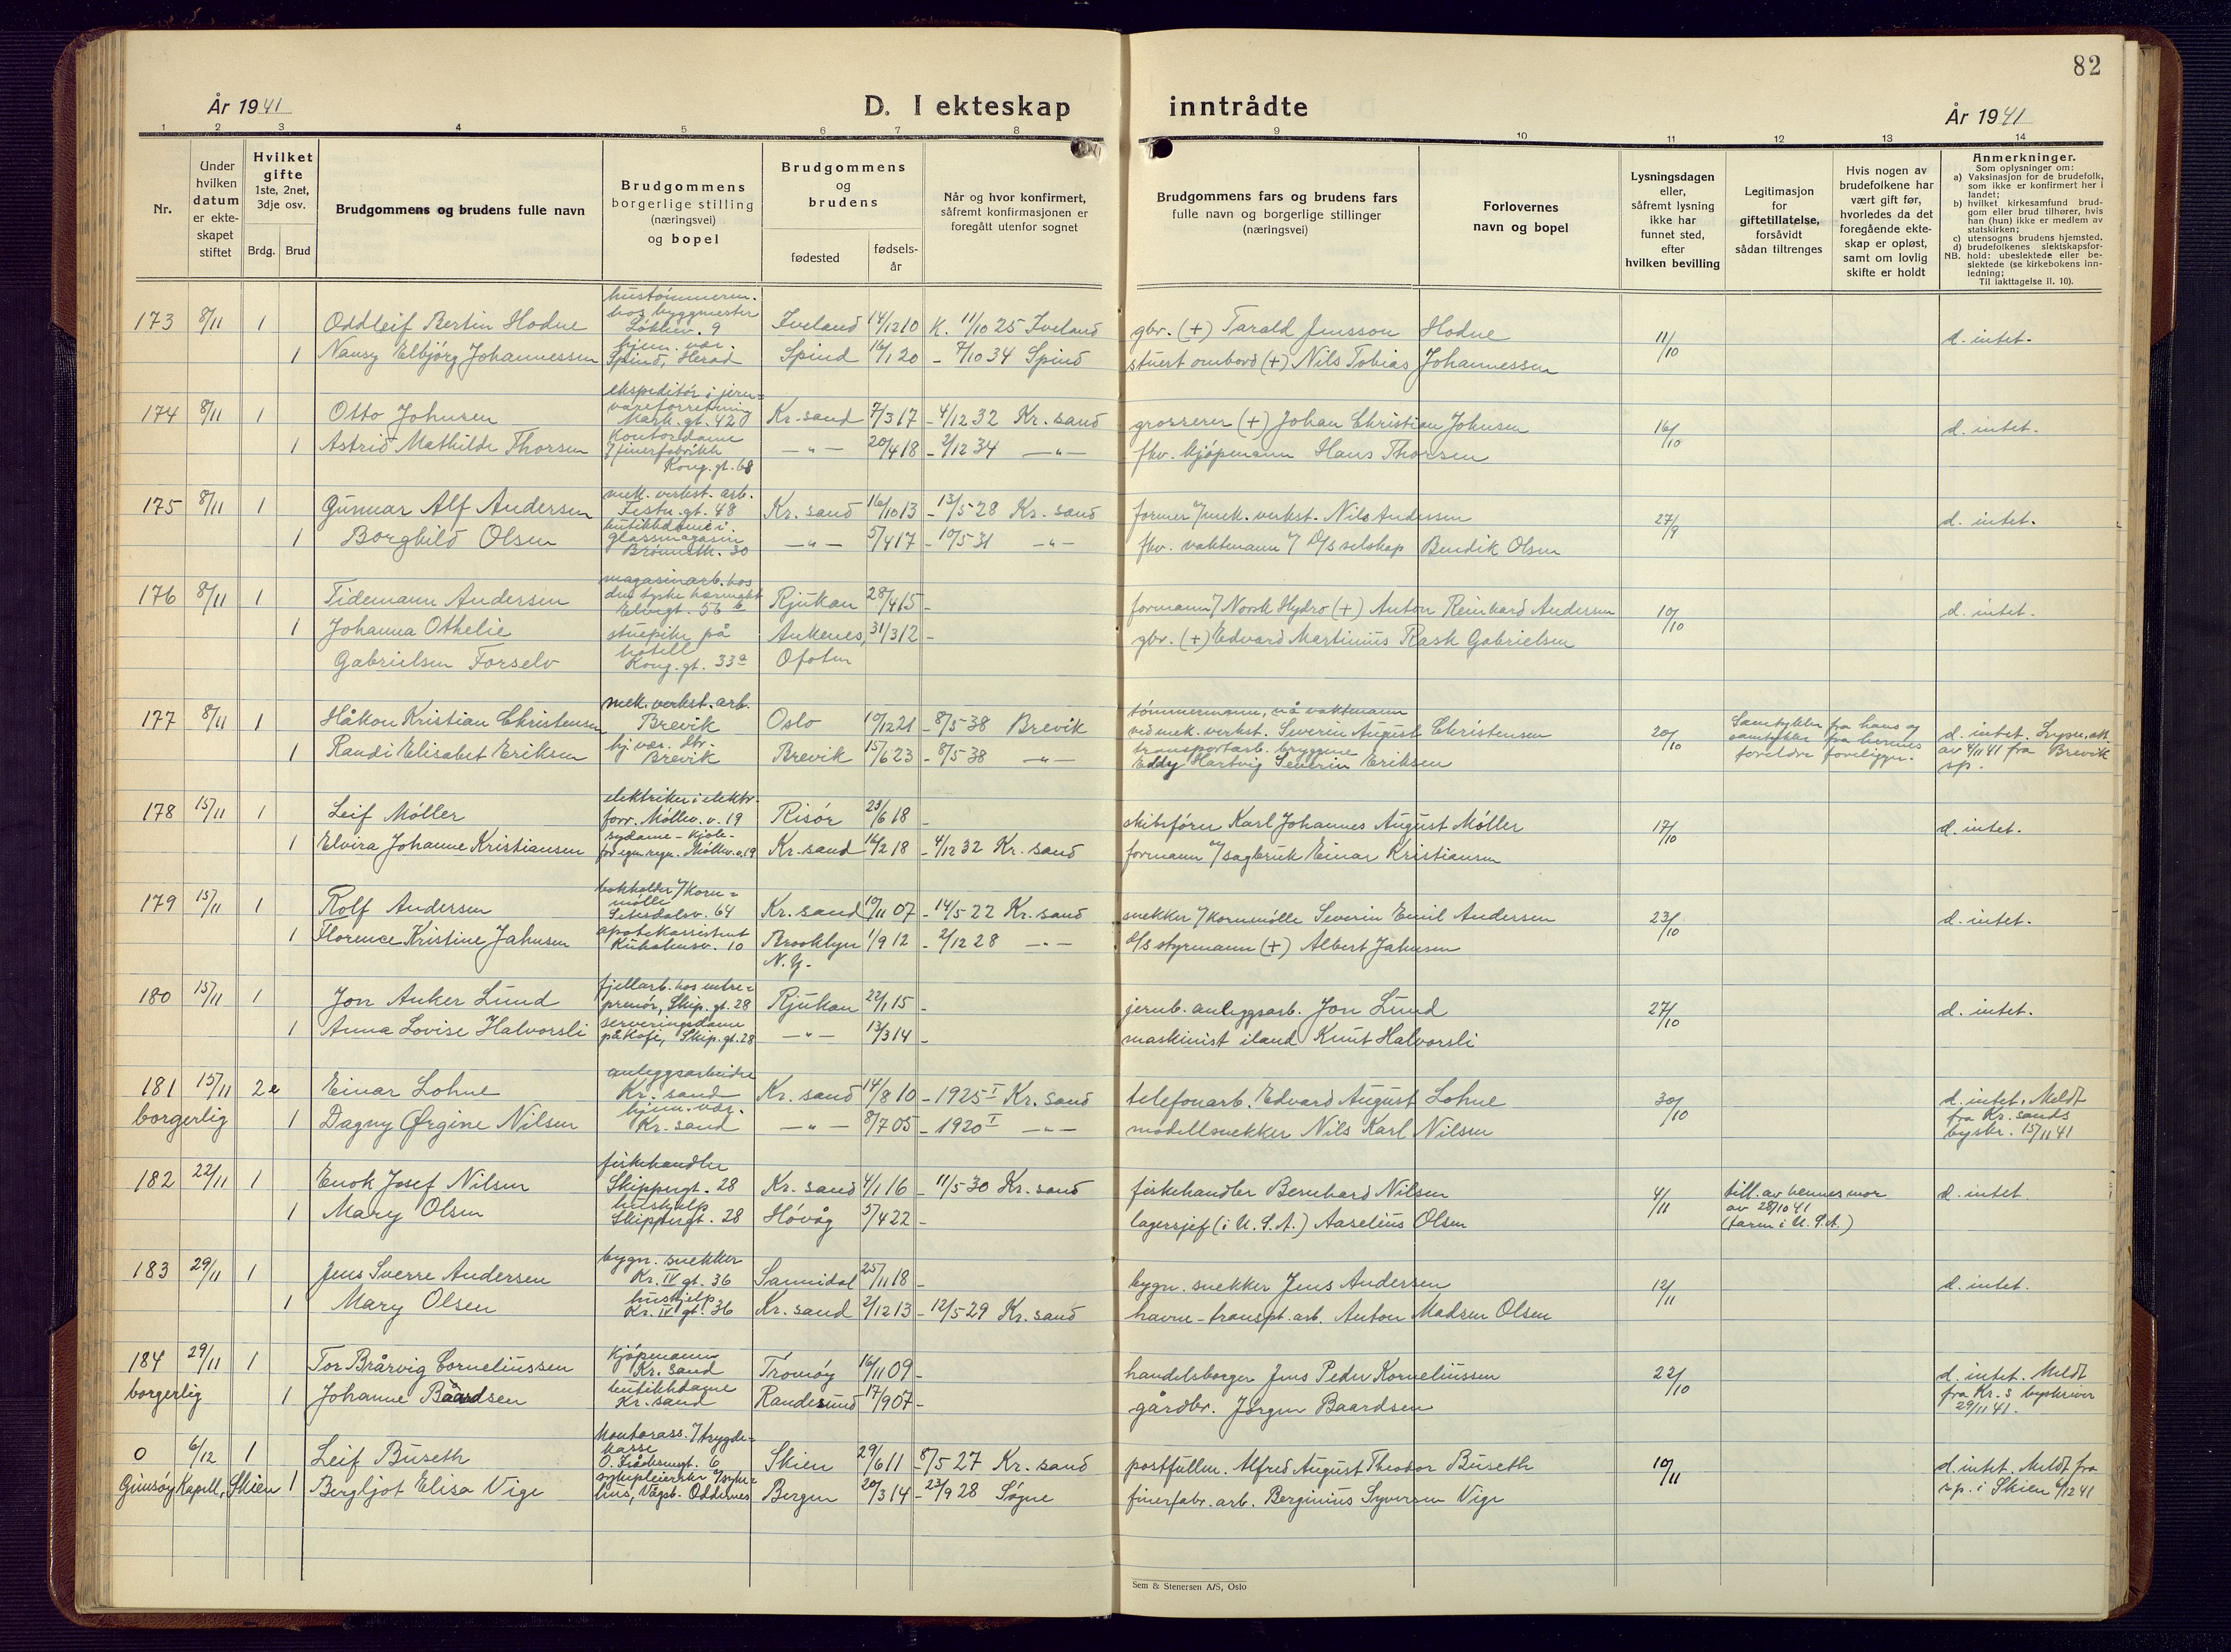 82
År 1941
D. I ekteskap inntrådte
År 1941
1 2 3 4 5 6 7 8 9 10 11 12 13 14
Nr.
Under hvilken datum er ekteskapet stiftet
Hvilket gifte 1ste, 2net, 3dje osv.
Brdg. Brud
Brudgommens og brudens fulle navn
Brudgommens borgerlige stilling (næringsvei) og bopel
Brudgommens og brudens
fødested
fødselsår
Når og hvor konfirmert, såfremt konfirmasjonen er foregått utenfor sognet
Brudgommens fars og brudens fars fulle navn og borgerlige stillinger (næringsvei)
Forlovernes navn og bopel
Lysningsdagen eller, såfremt lysning ikke har funnet sted, efter hvilken bevilling
Legitimasjon for giftetillatelse, forsåvidt sådan tiltrenges
Hvis nogen av brudefolkene har vært gift før, hvorledes da det foregående ekteskap er opløst, samt om lovlig skifte er holdt
Anmerkninger.
Som oplysninger om:
a) Vaksinasjon for de brudefolk, som ikke er konfirmert her i landet;
b) hvilket kirkesamfund brudgom eller brud tilhører, hvis han (hun) ikke er medlem av statskirken;
c) utensogns brudens hjemsted.
d) brudefolkenes slektskapsforhold: ubeslektede eller beslektede (se kirkebokens innledning;
NB.
Til iakttagelse II. 10).
173 8/11 1 Oddleif Bertin Hodne hustømmerm. hos byggmester Løkkev. 9 Iveland 14/12 10 K. 11/10 25 Iveland gbr. (+) Tarald Jensson Hodne 11/10 d. intet.
1 Nansy Elbjørg Johannessen hjem. vær. Spind, Herad Spind 16/1 20 - 7/10 34 Spind stuert ombord (+) Nils Tobias Johannessen
174 8/11 1 Otto Johnsen ekspeditør i jernvareforretning Mark. gt. 42 Kr. sand 7/3 17 - 4/12 32 Kr. sand grosserer (+) Johan Christian Johnsen 16/10 d. intet.
1 Astrid Mathilde Thorsen kontordame v/ finerfabrikk Kong. gt. 68 —"— 20/4 18 - 2/12 34 —"— fhv. kjøpmann Hans Thorsen
175 8/11 1 Gunnar Alf Andersen mek. verkst. arb. Festn. gt. 48 Kr. sand 16/10 13 - 13/5 28 Kr. sand former v/ mek. verkst. Nils Andersen 27/9 d. intet.
1 Borghild Olsen butikkdame i glassmagasin 30 —"— 5/4 17 - 10/5 31 —"— fhv. vaktmann v/ D/S selskap Bendik Olsen
176 8/11 1 Tidemann Andersen magasinarb. hos den tyske Elvegt. 56 b Rjukan 28/4 15 - formann v/ Norsk Hydro (+) Anton Reinhard Andersen 10/10 d. intet.
1 Johanna Othelie Gabrielsen Forselv stuepike på hotell Kong. gt. 33a Ankenes, Ofoten 31/3 12 - gbr. (+) Edvard Martinius Rask Gabrielsen
177 8/11 1 Håkon Kristian Christensen mek. verkst. arb. Brevik Oslo 10/12 21 - 8/5 38 Brevik tømmermann, nå vaktmann ved mek. verkst. Severin August Christensen 20/10 Samtykke fra hans og samtykke fra hennes foreldre foreligger. d. intet. Lysn. att. av 4/11 41 fra Brevik sp.
1 Randi Elisabet Eriksen hj. vær. Brevik Brevik 15/6 23 - 8/5 38 —"— transportarb. bryggene Eddy Hartvig Severin Eriksen
178 15/11 1 Leif Møller elektriker i elektr. forr. Møllev. v. 19 Risør 23/6 18 - skibsfører Karl Johannes August Møller 17/10 d. intet.
1 Elvira Johanne Kristiansen sydame - kjole- for egn. regn. Møllev. v. 19 Kr. sand 16/2 18 - 4/12 32 Kr. sand formann v/ sagbruk Einar Kristiansen
179 15/11 1 Rolf Andersen bokholder v/ Kornmølle Setesdalsv. 64 Kr. sand 10/11 07 - 14/5 22 Kr. sand snekker v/ kornmølle Severin Emil Andersen 23/10 d. intet.
1 Florence Kristine Jahnsen apotekassistent 10 Brooklyn N.Y. 1/9 12 - 2/12 28 —"— D/S styrmann (+) Albert Jahnsen
180 15/11 1 Jon Anker Lund fjellarb. hos entreprenør, Skip. gt. 28 Rjukan 22/1 15 - jernb. anleggsarb. Jon Lund 27/10 d. intet.
1 Anna Lovise Halvorsli serveringsdame på Kafe, Skip. gt. 28 —"— 13/3 14 - maskinist iland Knut Halvorsli
181 15/11 2e Einar Lohne anleggsarbeider Kr. sand Kr. sand 14/8 10 - 1925 I Kr. sand telefonarb. Edvard August Lohne 30/10 d. intet. Meldt fra Kr. sands byskr. 15/11 41
borgerlig 1 Dagny Ørgine Nilsen hjem. vær. Kr. sand —"— 8/7 05 - 1920 I —"— modellsnekker Nils Karl Nilsen
182 22/11 1 Enok Josef Nilsen fiskehandler Skippergt. 28 Kr. sand 4/1 16 - 11/5 30 Kr. sand fiskehandler Bernhard Nilsen 4/11 till. av hennes mor av 28/10 41 (faren i U.S.A.) d. intet
1 Mary Olsen hushjelp Skippergt. 28 Høvåg 5/4 22 - lagersjef (i U.S.A.) Aaselius Olsen
183 29/11 1 Jens Sverre Andersen bygn. snekker Kr. IV gt. 36 Sannidal 25/11 18 - bygn. snekker Jens Andersen 12/11 d. intet.
1 Mary Olsen hushjelp Kr. IV gt. 36 Kr. sand 2/12 13 - 12/5 29 Kr. sand havne-transpt. arb. Anton Madsen Olsen
184 29/11 1 Tor Brårvig Corneliussen kjøpmann Kr. sand Tromøy 16/11 09 - handelsborger Jens Peder Korneliussen 22/10 d. intet. Meldt fra Kr. s byskriver 29/11 41.
borgerlig 1 Johanne Baardsen butikkdame Kr. sand Randesund 17/9 07 - gårdbr. Jørgen Baardsen
0 6/12 1 Leif Buseth kontorass. v/ trygdekasse 6 Skien 29/6 11 - 8/5 27 Kr. sand postfullm. Alfred August Theodor Buseth 10/11 d. intet. Meldt fra sp. i Skien 6/12 41
Gimsøy Kapell, Skien 1 Bergljot Elisa Vige sykepleierske v/ sykehus, Vågsb. Oddernes Bergen 20/3 14 - 23/9 28 Søgne finerfabr. arb. Berginius Syversen Vige
Sem & Stenersen A/S, Oslo